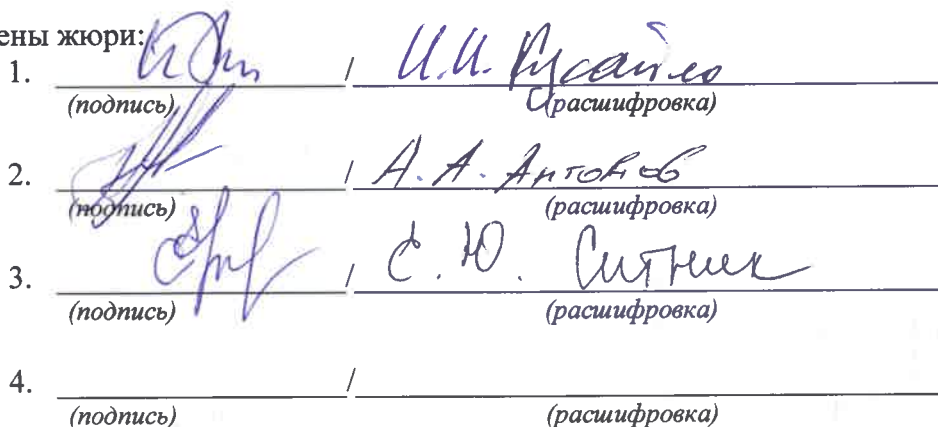 ены жюри:
1. / И.И. Русайло
(подпись) (расшифровка)
2. / А.А. Антонов
(подпись) (расшифровка)
3. / С.Ю. Ситник
(подпись) (расшифровка)
4. /
(подпись) (расшифровка)